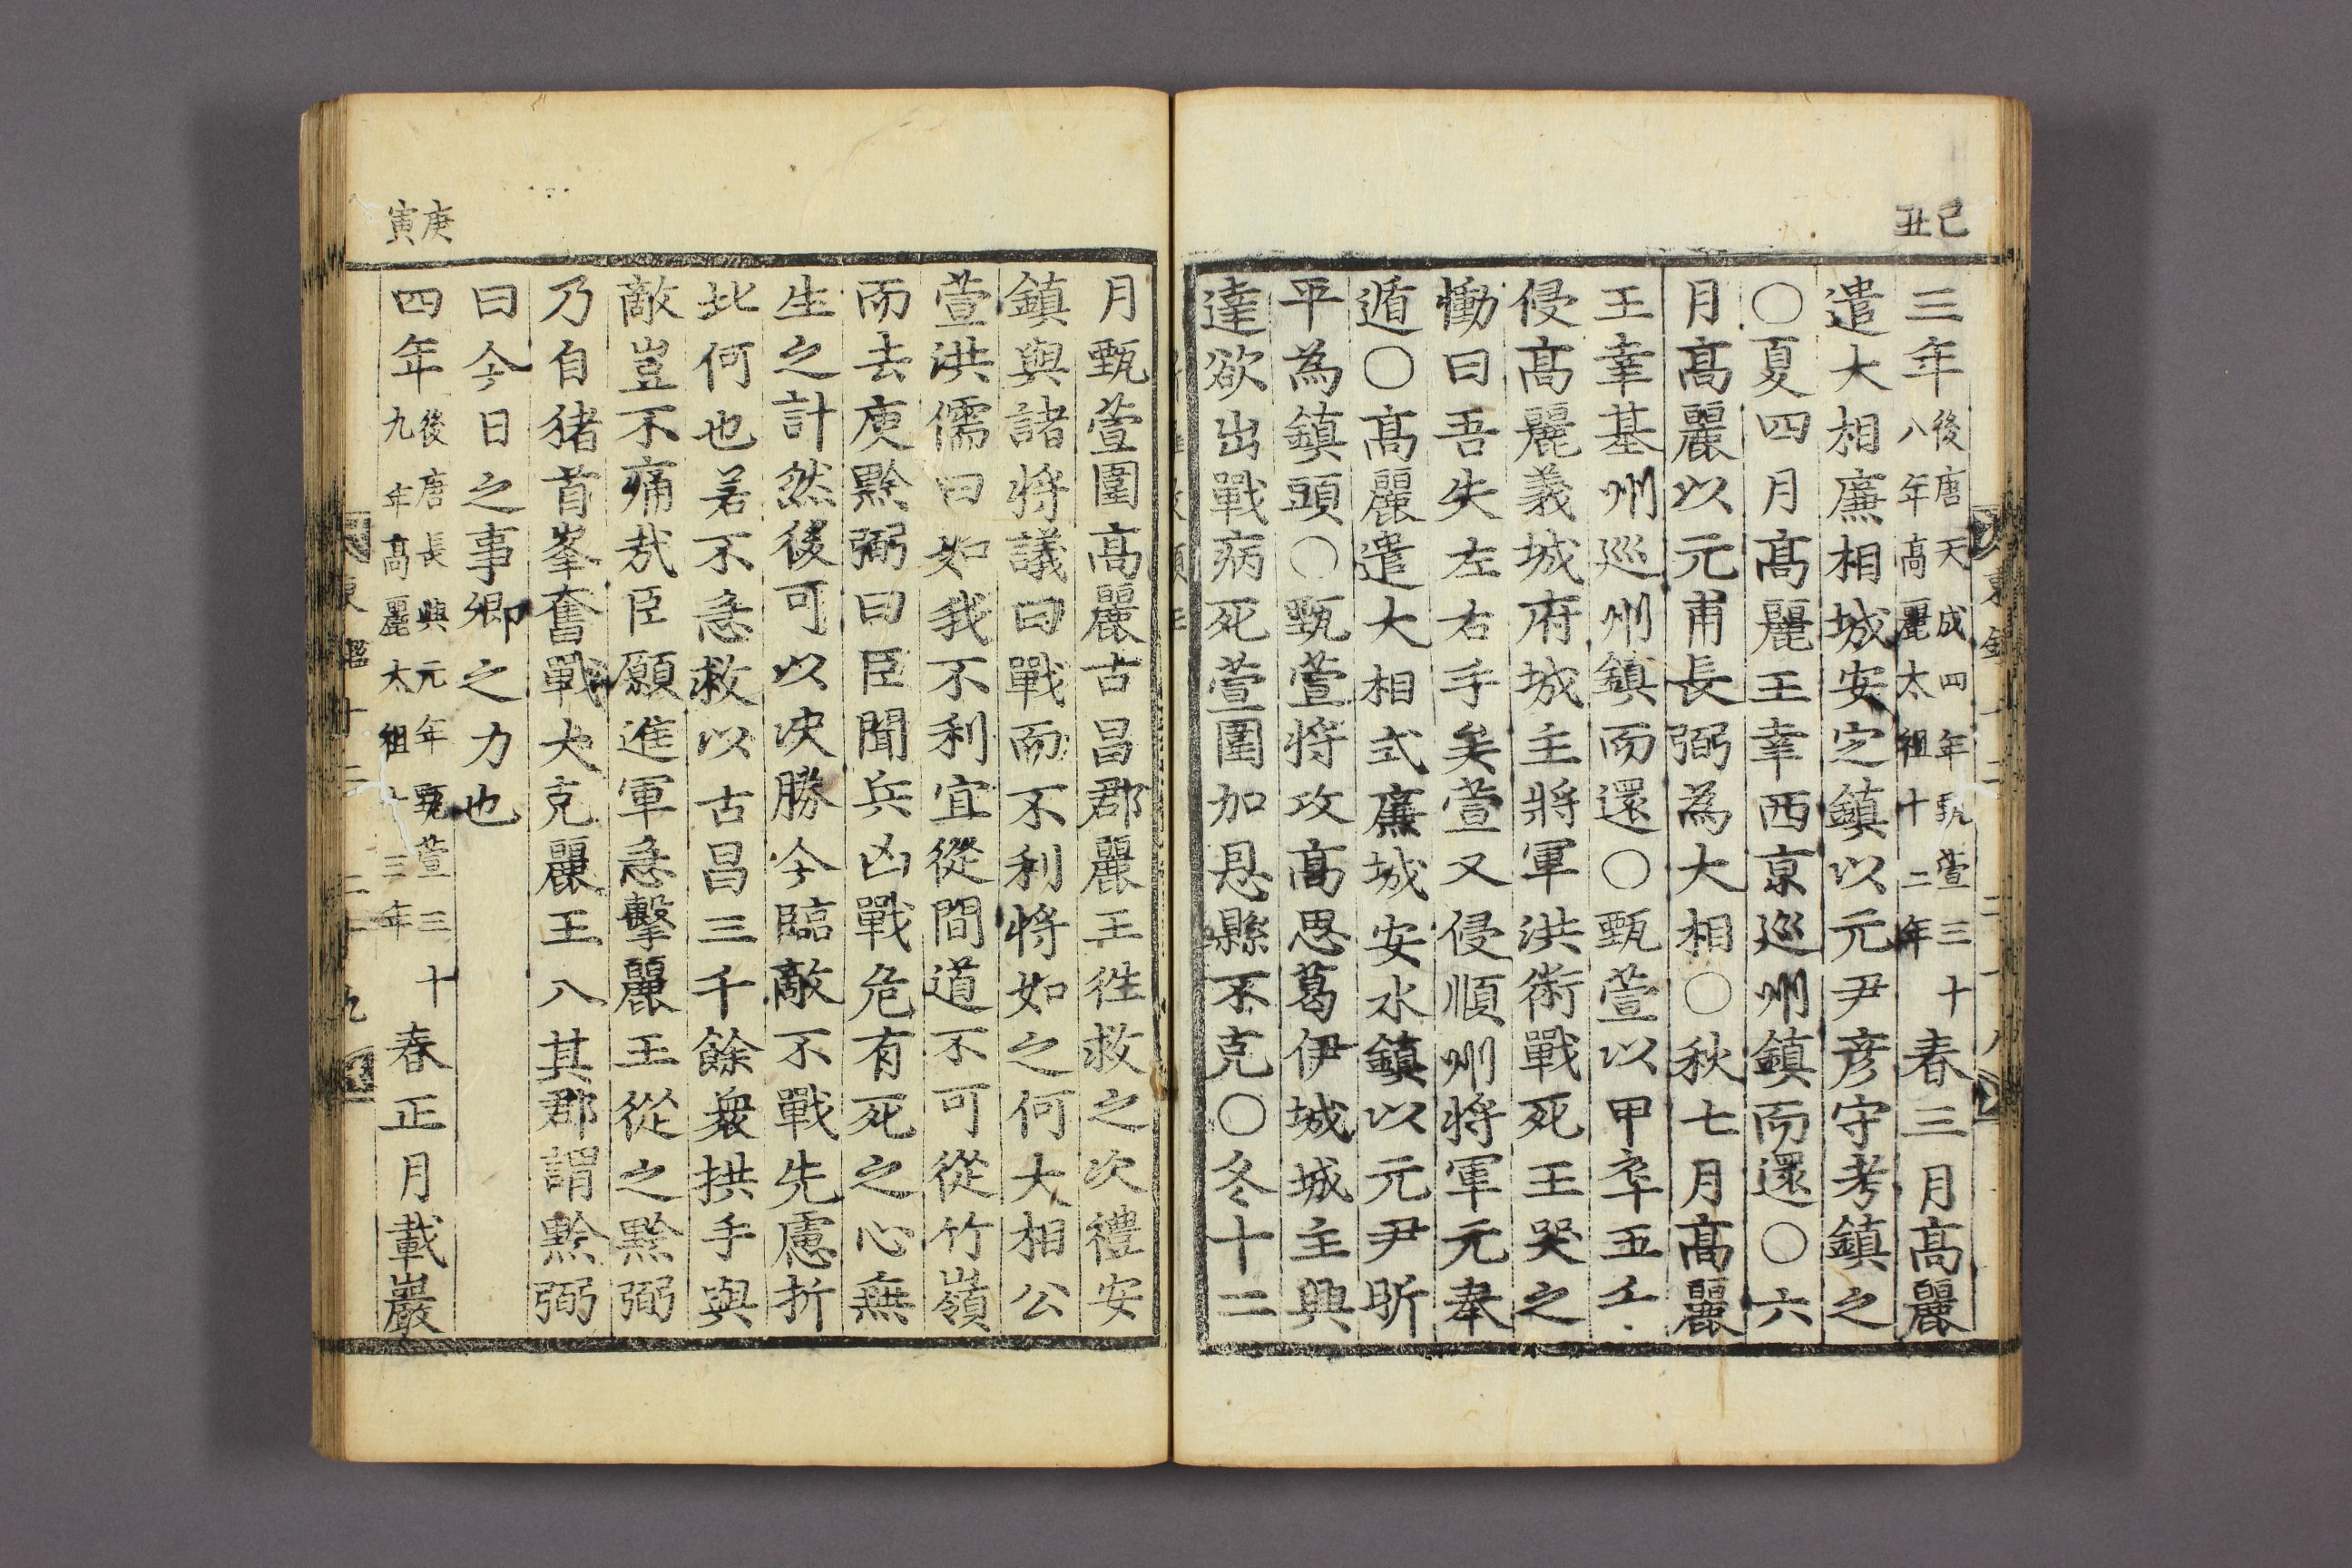 己丑
三年後唐天成四年甄萱三十八年高麗太祖十二年春三月高麗
遣大相廉相城安定鎮以元尹彦守考鎮之
〇夏四月髙麗王幸西京巡州鎮而還〇六
月髙麗以元甫長弼為大相〇秋七月髙麗
王幸基州巡州鎮而還〇甄萱以甲卒五千
侵髙麗義城府城主將軍洪術戰死王哭之
慟曰吾失左右手矣萱又侵順州將軍元奉
遁〇髙麗遣大相式廉城安水鎮以元尹昕
平為鎮頭〇甄萱將攻髙思葛伊城城主興
達欲出戰病死萱圍加恩縣不克〇冬十二
月甄萱圍髙麗古昌郡麗王徃救之次禮安
鎮與諸將議曰戰而不利將如之何大相公
萱洪儒曰如我不利宜從間道不可從竹嶺
而去庾黔弼曰臣聞兵凶戰危有死之心無
生之計然後可以决勝今臨敵不戰先慮折
北何也若不急救以古昌三千餘衆拱手與
敵豈不痛㢤臣願進軍急擊麗王從之黔弼
乃自猪首峯奮戰大克麗王入其郡謂黔弼
曰今日之事卿之力也
庚寅
四年後唐長興元年甄萱三十九年髙麗太祖十三年春正月載巖